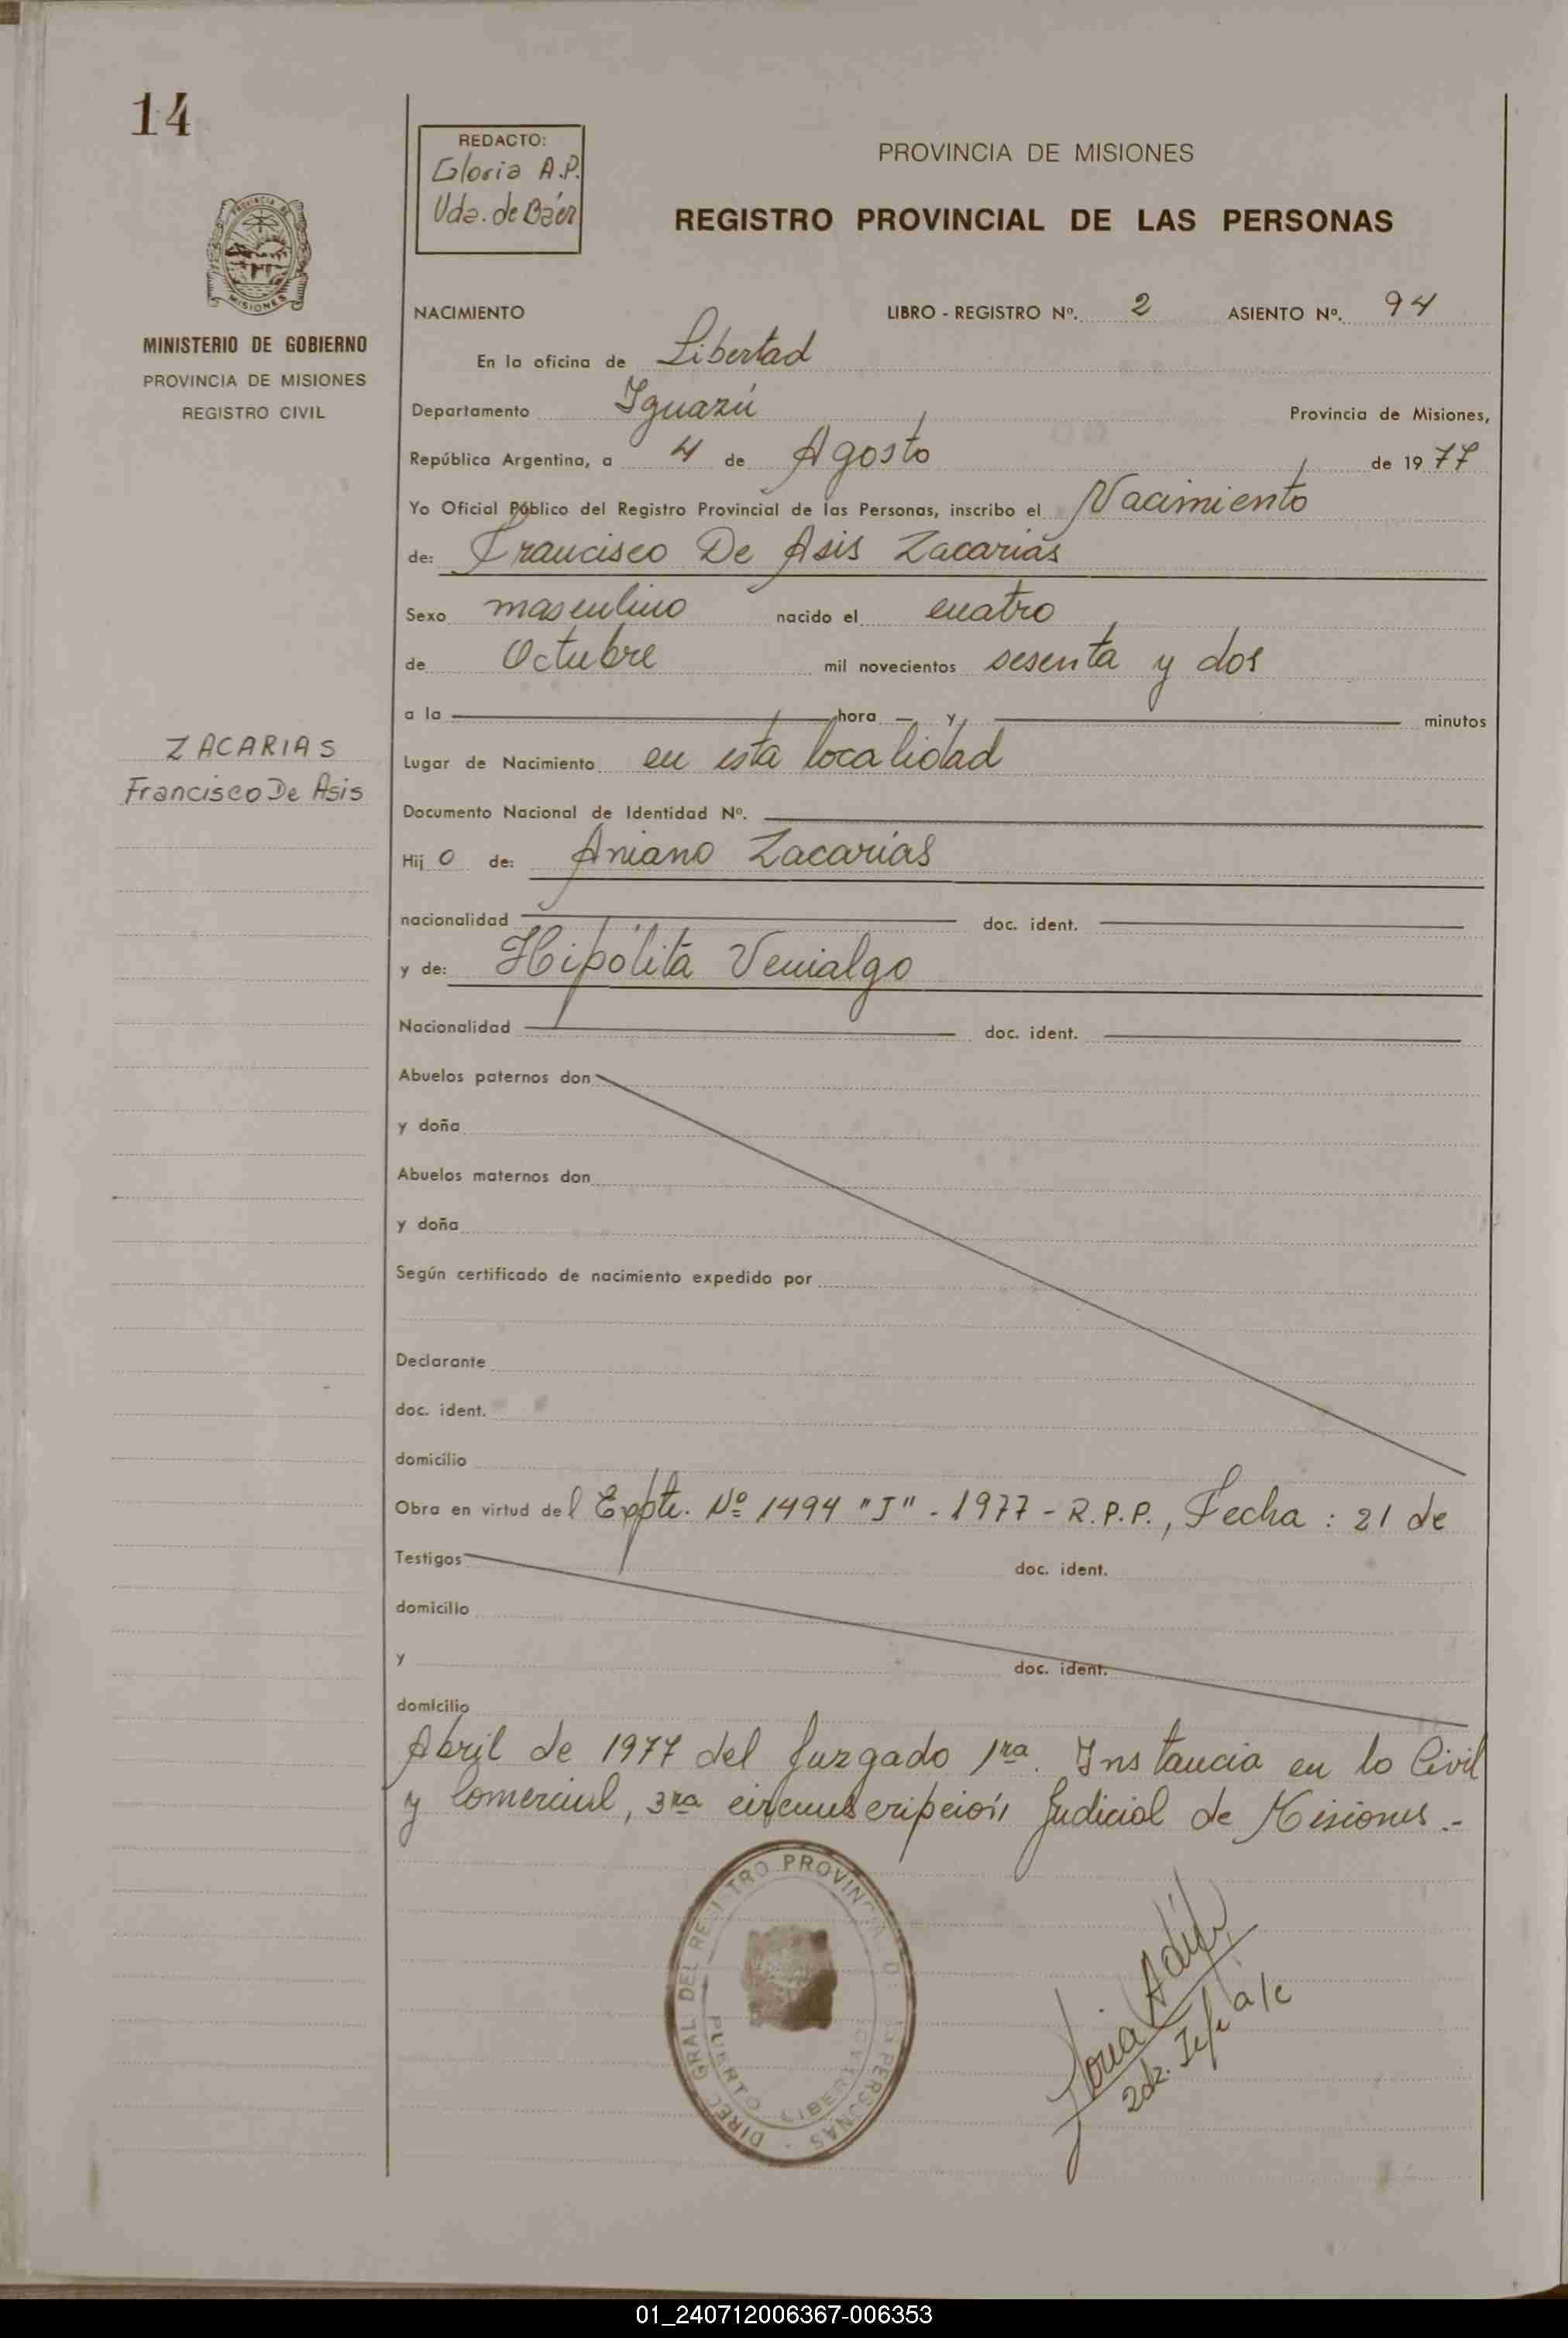 14
REDACTO:
Gloria A.P.
Vda. de Báez
PROVINCIA DE MISIONES
REGISTRO PROVINCIAL DE LAS PERSONAS
MISIONES
MINISTERIO DE GOBIERNO
PROVINCIA DE MISIONES
REGISTRO CIVIL
NACIMIENTO LIBRO - REGISTRO Nº. 2 ASIENTO Nº. 94
En la oficina de Libertad
Departamento Iguazú Provincia de Misiones,
República Argentina, a 4 de Agosto de 1977
Yo Oficial Público del Registro Provincial de las Personas, inscribo el Nacimiento
de: Francisco De Asis Zacarias
Sexo masculino nacido el cuatro
de Octubre mil novecientos sesenta y dos
a la hora y minutos
ZACARIAS
Francisco De Asis
Lugar de Nacimiento en esta localidad
Documento Nacional de Identidad Nº.
Hijo de: Aniano Zacarias
nacionalidad doc. ident.
y de: Hipólita Venialgo
Nacionalidad doc. ident.
Abuelos paternos don
y doña
Abuelos maternos don
y doña
Según certificado de nacimiento expedido por
Declarante
doc. ident.
domicilio
Obra en virtud del Expte. Nº 1494 "J" - 1977 - R.P.P., Fecha: 21 de
Testigos doc. ident.
domicilio
y doc. ident.
domicilio
Abril de 1977 del Juzgado 1ra. Instancia en lo Civil
y Comercial, 3ra circunscripción Judicial de Misiones.-
DIREC. GRAL. DEL REGISTRO PROVINCIAL D PERSONAS -
PUERTO LIBERTAD
2da. Jefe a/c
01_240712006367-006353